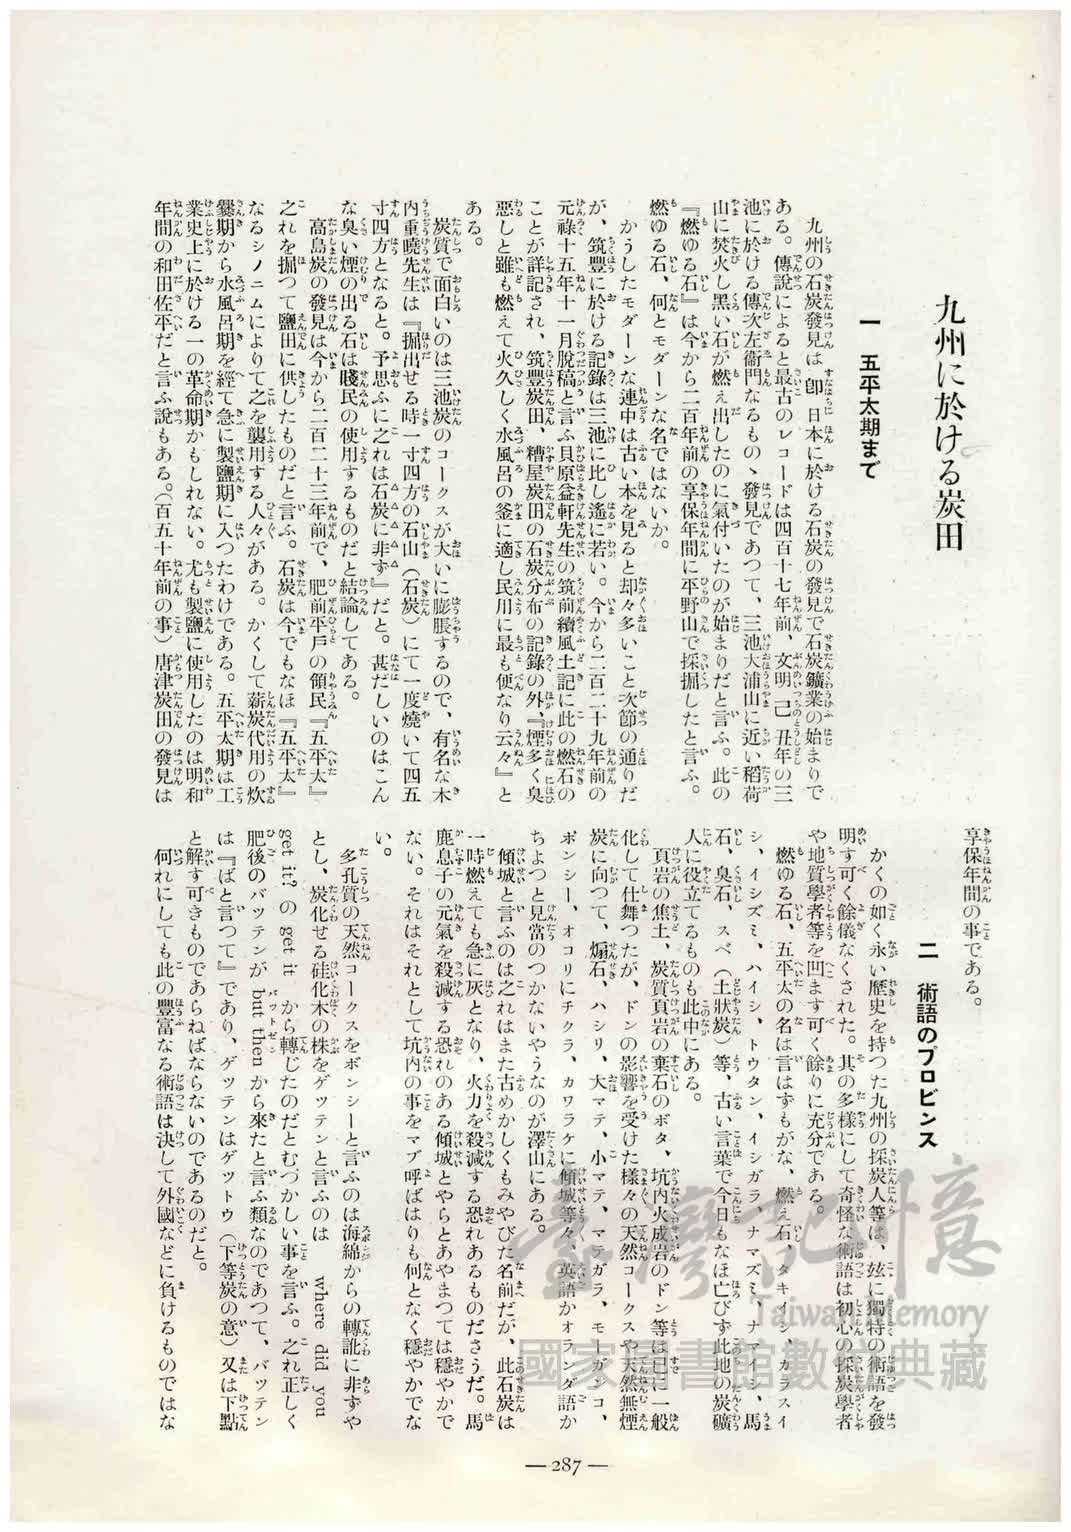 九州に於ける炭田
一 五平太期まで
九州の石炭發見は卽日本に於ける石炭の發見で石炭鑛業の始まりで
ある。傳說によると最古のレコードは四百十七年前、文明己丑年の三
池に於ける傳次左衞門なるものゝ發見であつて、三池大浦山に近い稻荷
山に焚火し黑い石が燃え出したのに氣付いたのが始まりだと言ふ。此の
『燃ゆる石』は今から二百年前の享保年間に平野山で採掘したと言ふ。
燃ゆる石、何とモダーンな名ではないか。
かうしたモダーンな連中は古い本を見ると却々多いこと次節の通りだ
が、筑豐に於ける記錄は三池に比し遙に若い。今から二百二十九年前の
元祿十五年十一月脫稿と言ふ貝原益軒先生の筑前續風土記に此の燃石の
ことが詳記され、筑豐炭田、糟屋炭田の石炭分布の記錄の外、『煙多く臭
惡しと雖も燃えて火久しく水風呂の釜に適し民用に最も便なり云々』と
ある。
炭質で面白いのは三池炭のコークスが大いに膨脹するので、有名な木
内重曉先生は『掘出せる時一寸四方の石山（石炭）にて一度燒いて四五
寸四方となると。予思ふに之れは石炭に非ず』だと。甚だしいのはこん
な臭い煙の出る石は賤民の使用するものだと結論してある。
高島炭の發見は今から二百二十三年前で、肥前平戶の領民『五平太』
之れを掘つて鹽田に供したものだと言ふ。石炭は今でもなほ『五平太』
なるシノニムによりて之を襲用する人々がある。かくして薪炭代用の炊
爨期から水風呂期を經て急に製鹽期に入つたわけである。五平太期は工
業史上に於ける一の革命期かもしれない。尤も製鹽に使用したのは明和
年間の和田佐平だと言ふ說もある。（百五十年前の事）唐津炭田の發見は
享保年間の事である。
二 術語のプロビンス
かくの如く永い歷史を持つた九州の採炭人等は、玆に獨特の術語を發
明す可く餘儀なくされた。其の多樣にして奇怪な術語は初心の採炭學者
や地質學者等を凹ます可く餘りに充分である。
燃ゆる石、五平太の名は言はずもがな、燃え石、タキイシ、カラスイ
シ、イシズミ、ハイシ、トウタン、イシガラ、ナマズミ、ナマイシ、馬
石、臭石、スベ（土狀炭）等、古い言葉で今日もなほ亡びず此地の炭礦
人に役立てるものも此中にある。
頁岩の焦土、炭質頁岩の棄石のボタ、坑內火成岩のドン等は已に一般
化して仕舞つたが、ドンの影響を受けた樣々の天然コークスや天然無煙
炭に向つて、煽石、ハシリ、大マテ、小マテ、マテガラ、モーガンコ、
ボンシー、オコリにチクラ、カワラケに傾城等々、英語かオランダ語か
ちよつと見當のつかないやうなのが澤山にある。
傾城と言ふのは之れはまた古めかしくもみやびた名前だが、此石炭は
一時燃えても急に灰となり、火力を殺減する恐れあるものださうだ。馬
鹿息子の元氣を殺減する恐れのある傾城とやらとあやまつては穩やかで
ない。それはそれとして坑內の事をマブ呼ばはりも何となく穩やかでな
い。
多孔質の天然コークスをボンシーと言ふのは海綿からの轉訛に非ずや
とし、炭化せる硅化木の株をゲツテンと言ふのは where did you
get it? の get it から轉じたのだとむづかしい事を言ふ。之れ正しく
肥後のバツテンが but then から來たと言ふ類なのであつて、バツテン
は『ばと言つて』であり、ゲツテンはゲツトウ（下等炭の意）又は下點
と解す可きものであらねばならないのであるのだと。
何れにしても此の豐富なる術語は決して外國などに負けるものではな
— 287 —
臺灣記憶
Taiwan Memory
國家圖書館數位典藏